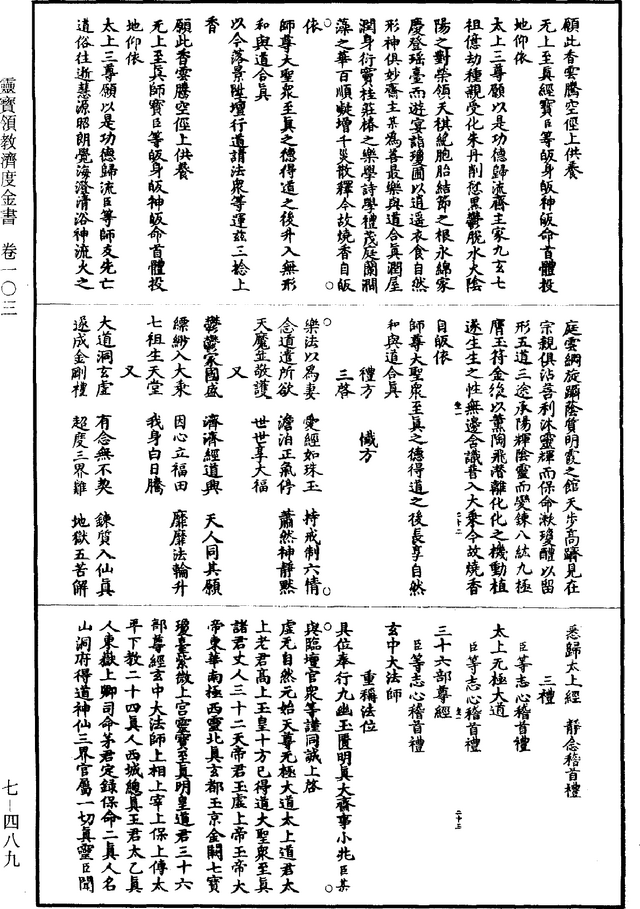 願此香雲騰空徑上供養
无上至真經寶臣等皈身皈神皈命首體投
地仰依
太上三尊願以是功德歸流齋主家九玄七
祖億劫種親受化朱丹削愆黑鬱脫水火陰
陽之對榮領天祺統胞胎結節之根永綿家
慶登瑤臺而遊宴詣瓊圃以逍遙衣食自然
形神俱妙齋主某為善最樂與道合真潤屋
潤身衍竇桂莊椿之樂學詩學禮茂庭蘭澗
藻之華百順駢增千災散釋今故燒香自皈
依
師尊大聖眾至真之德得道之後升入無形
和與道合真
以今落景陞壇行道請法眾等運茲三捻上
香
願此香雲騰空徑上供養
无上至真師寶臣等皈身皈神皈命首體投
地仰依
太上三尊願以是功德歸流臣等師友先亡
道俗往逝慧源昭朗覺海澄清浴神流火之
庭雲綱旋躡蔭質明霞之館天步高躋見在
宗親俱沾善利沐靈輝而保命漱瓊醴以留
形五道三途承陽輝陰靈而變鍊八紘九極
膺玉符金液以薰陶飛潛離化化之機動植
遂生生之性無邊含識普入大乘今故燒香
自皈依
師尊大聖眾至真之德得道之後長享自然
和與道合真
禮方 懺方
三啓
樂法以為妻 愛經如珠玉 持戒制六情
念道遣所欲 澹泊正氣停 蕭然神靜默
天魔並敬護 世世享大福
又
鬱鬱家國盛 濟濟經道興 天人同其願
縹緲入大乘 因心立福田 靡靡法輪升
七祖生天堂 我身白日騰
又
大道洞玄虛 有念無不契 鍊質入仙真
遂成金剛禮 超度三界難 地獄五苦解
悉歸太上經 靜念稽首禮
三禮
臣等志心稽首禮
太上无極大道
臣等志心稽首禮
三十六部尊經
臣等志心稽首禮
玄中大法師
重稱法位
具位奉行九幽玉匱明真大齋事小兆臣某
與臨壇官眾等謹同誠上啓
虛无自然元始天尊无極大道太上道君太
上老君高上玉皇十方已得道大聖眾至真
諸君丈人三十二天帝君玉虛上帝玉帝大
帝東華南極西靈北真玄都玉京金闕七寶
瓊臺紫微上宮靈寶至真明皇道君三十六
部尊經玄中大法師上相上宰上保上傅太
平下教二十四真人西城總真王君太乙真
人東嶽上卿司命茅君定錄保命二真人名
山洞府得道神仙三界官屬一切真靈臣聞
靈寶領教濟度金書 卷一〇三
七－四八九